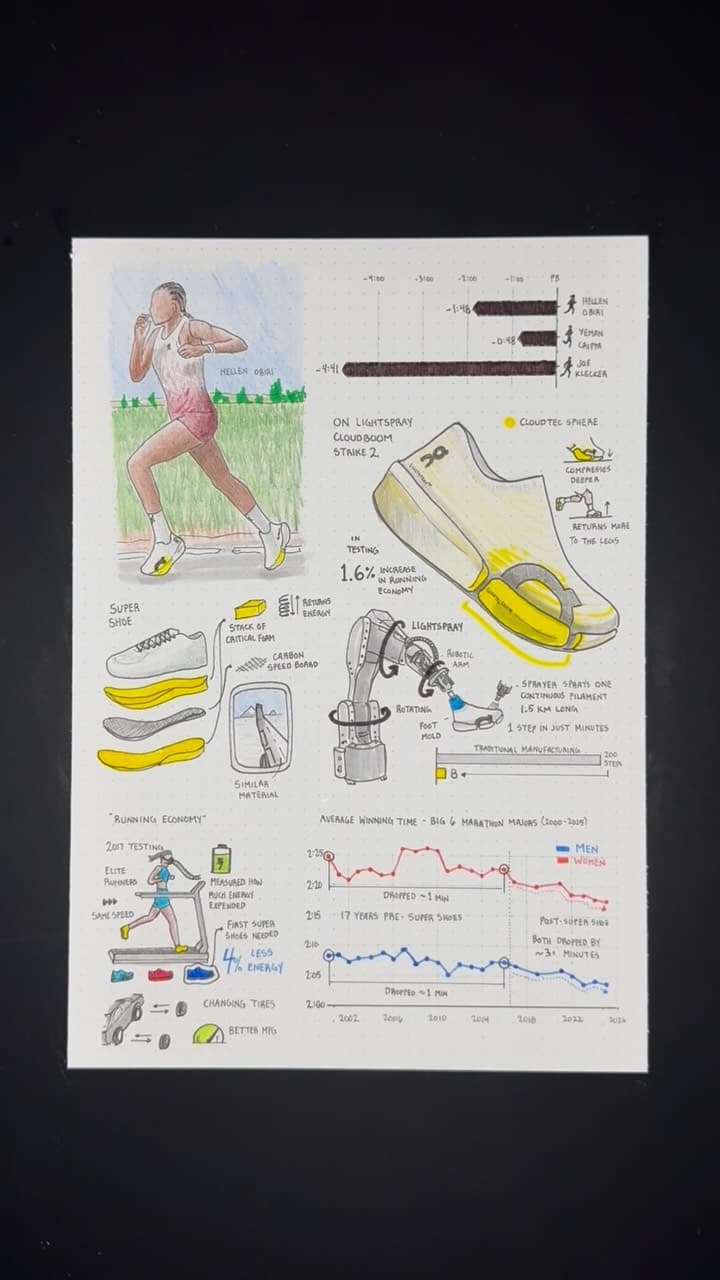 HELLEN OBIRI
-4:00 -3:00 -2:00 -1:00 PB
-1:48
HELLEN
OBIRI
-0:48
YEMAN
CRIPPA
-4:41
JOE
KLECKER
ON LIGHTSPRAY
CLOUDBOOM
STRIKE 2
CLOUDTEC SPHERE
COMPRESSES
DEEPER
RETURNS MORE
TO THE LEGS
IN
TESTING
1.6% INCREASE
IN RUNNING
ECONOMY
SUPER
SHOE
STACK OF
CRITICAL FOAM
RETURNS
ENERGY
CARBON
SPEED BOARD
SIMILAR
MATERIAL
LIGHTSPRAY
ROBOTIC
ARM
ROTATING
FOOT
MOLD
- SPRAYER SPRAYS ONE
CONTINUOUS FILAMENT
1.5 KM LONG
1 STEP IN JUST MINUTES
TRADITIONAL MANUFACTURING
200
STEPS
8
"RUNNING ECONOMY"
2017 TESTING
ELITE
RUNNERS
SAME SPEED
MEASURED HOW
MUCH ENERGY
EXPENDED
FIRST SUPER
SHOES NEEDED
4% LESS
ENERGY
CHANGING TIRES
BETTER MPG
AVERAGE WINNING TIME - BIG 6 MARATHON MAJORS (2000-2025)
MEN
WOMEN
2:25
2:20
DROPPED ~1 MIN
2:15
17 YEARS PRE-SUPER SHOES
POST-SUPER SHOE
2:10
BOTH DROPPED BY
~3+ MINUTES
2:05
DROPPED ~1 MIN
2:00
2002 2006 2010 2014 2018 2022 2026